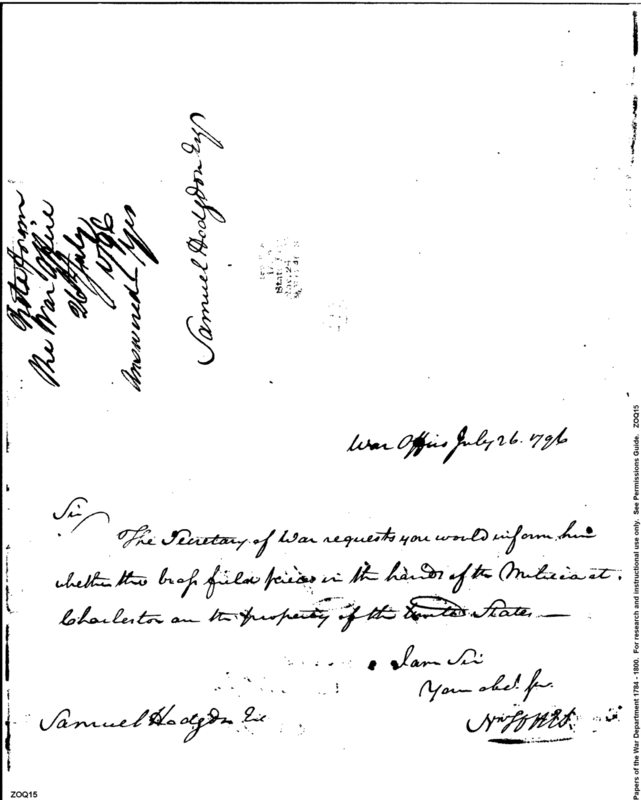 Note from
The War Office
26th July
1796
Answered Yes
Samuel Hodgdon Esq
War Office July 26. 1796
Sir
The Secretary of War requests you would inform him
whether the brass field pieces in the hands of the Militia at
Charleston are the property of the United States
I am Sir
Your obed. sr.
Samuel Hodgdon Esq
Papers of the War Department 1784 - 1800. For research and instructional use only. See Permissions Guide. ZOQ15
ZOQ15